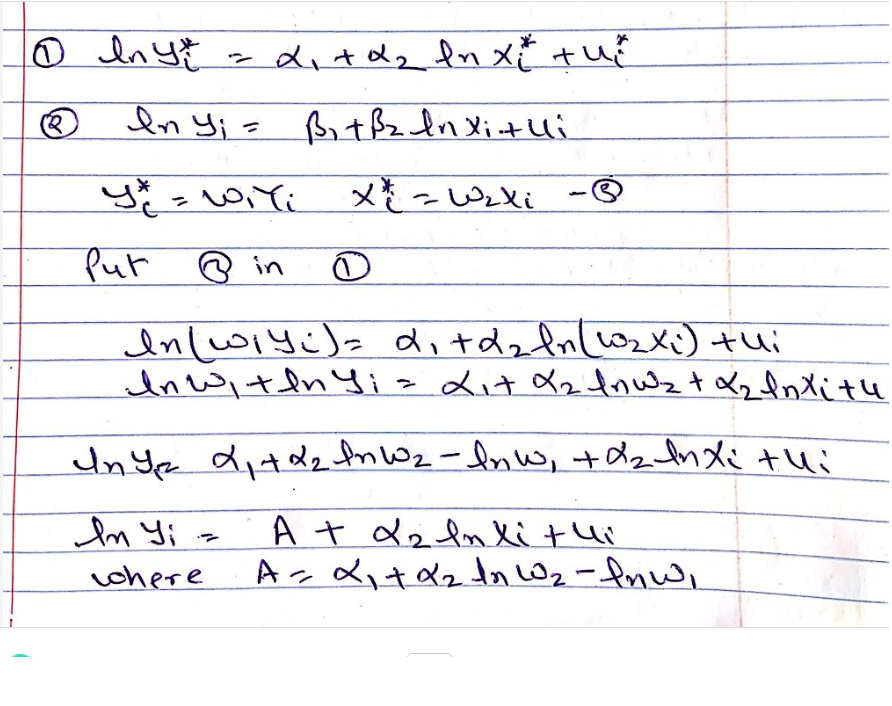 ① ln yᵢ* = α₁ + α₂ ln xᵢ* + uᵢ*
② ln yᵢ = β₁ + β₂ ln xᵢ + uᵢ
yᵢ* = w₁Yᵢ xᵢ* = w₂xᵢ - ③
Put ③ in ①
ln(w₁yᵢ) = α₁ + α₂ ln(w₂xᵢ) + uᵢ
ln w₁ + ln yᵢ = α₁ + α₂ ln w₂ + α₂ ln xᵢ + u
ln yᵢ = α₁ + α₂ ln w₂ - ln w₁ + α₂ ln xᵢ + uᵢ
ln yᵢ = A + α₂ ln xᵢ + uᵢ
where A = α₁ + α₂ ln w₂ - ln w₁